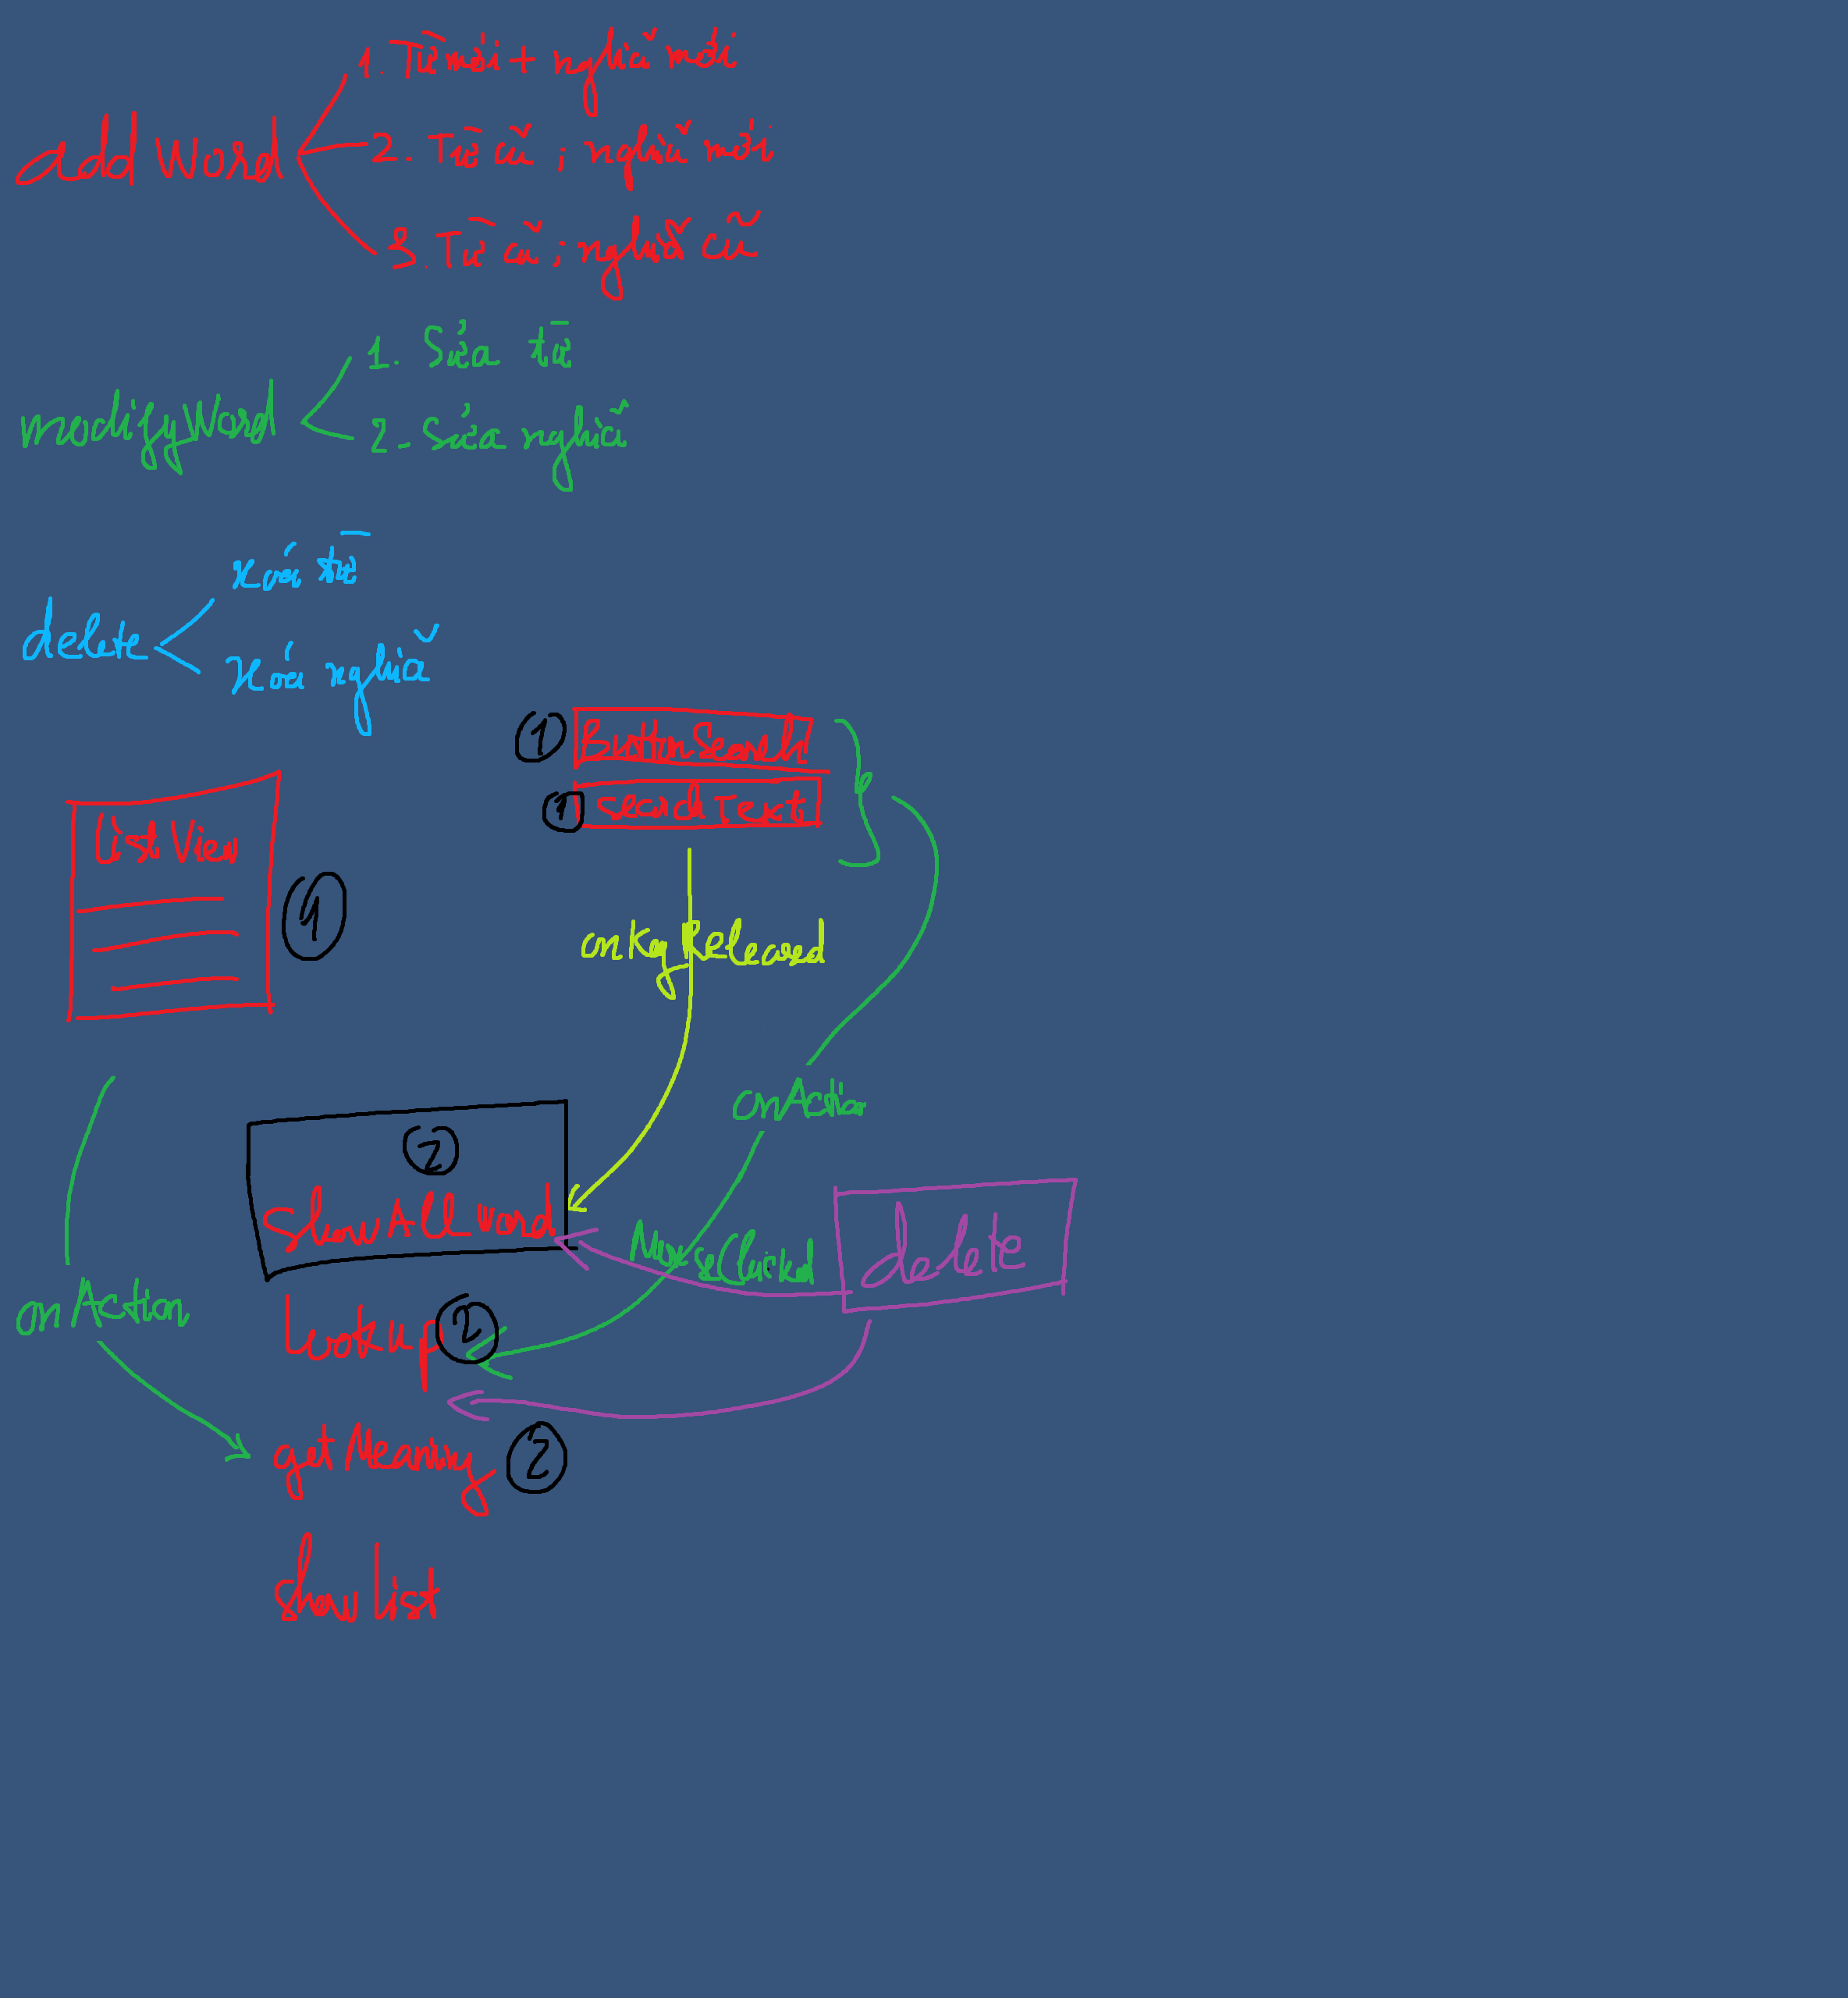 1. Từ mới + nghĩa mới
add Word
2. Từ cũ ; nghĩa mới
3. Từ cũ ; nghĩa cũ
1. Sửa từ
modifyWord
2. Sửa nghĩa
xoá từ
delete
xoá nghĩa
1 Button Search
1 search Text
List View
1
onKeyReleased
onAction
2
Show All word
MouseClicked
delete
onAction
Lookup 2
getMeaning 2
show list